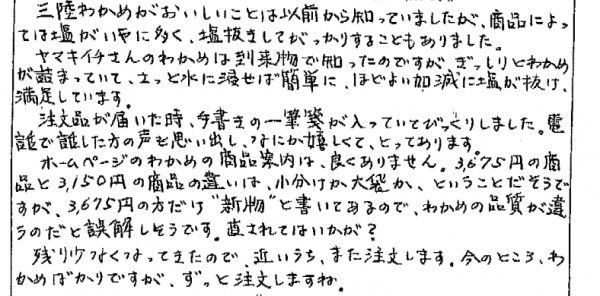 三陸わかめがおいしいことは以前から知っていましたが、商品によっ
ては塩がいやに多く、塩抜きしてがっかりすることもありました。
ヤマキイチさんのわかめは到来物で知ったのですが、ぎっしりとわかめ
が詰まっていて、さっと水に浸せば簡単に、ほどよい加減に塩が抜け、
満足しています。
注文品が届いた時、手書きの一筆箋が入っていてびっくりしました。電
話で話した方の声を思い出し、なにか嬉しくて、とってあります。
ホームページのわかめの商品案内は、良くありません。3,675円の商
品と3,150円の商品の違いは、小分けか大袋か、ということだそうで
すが、3,675円の方だけ"新物"と書いてあるので、わかめの品質が違
うのだと誤解しそうです。直されてはいかが?
残り少なくなってきたので、近いうち、また注文します。今のところ、わ
かめばかりですが、ずっと注文しますね。